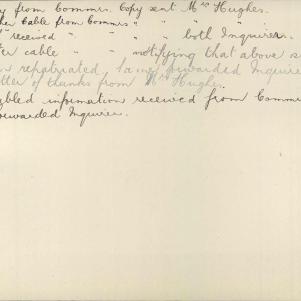 from Commrs. Copy sent Mrs Hughes.
Cable from Commrs " " "
received " " " both Inquirers.
cable " " notifying that above
repatriated forwarded Inquirer
of thanks from Mrs Hughes.
information received from
Inquirer.